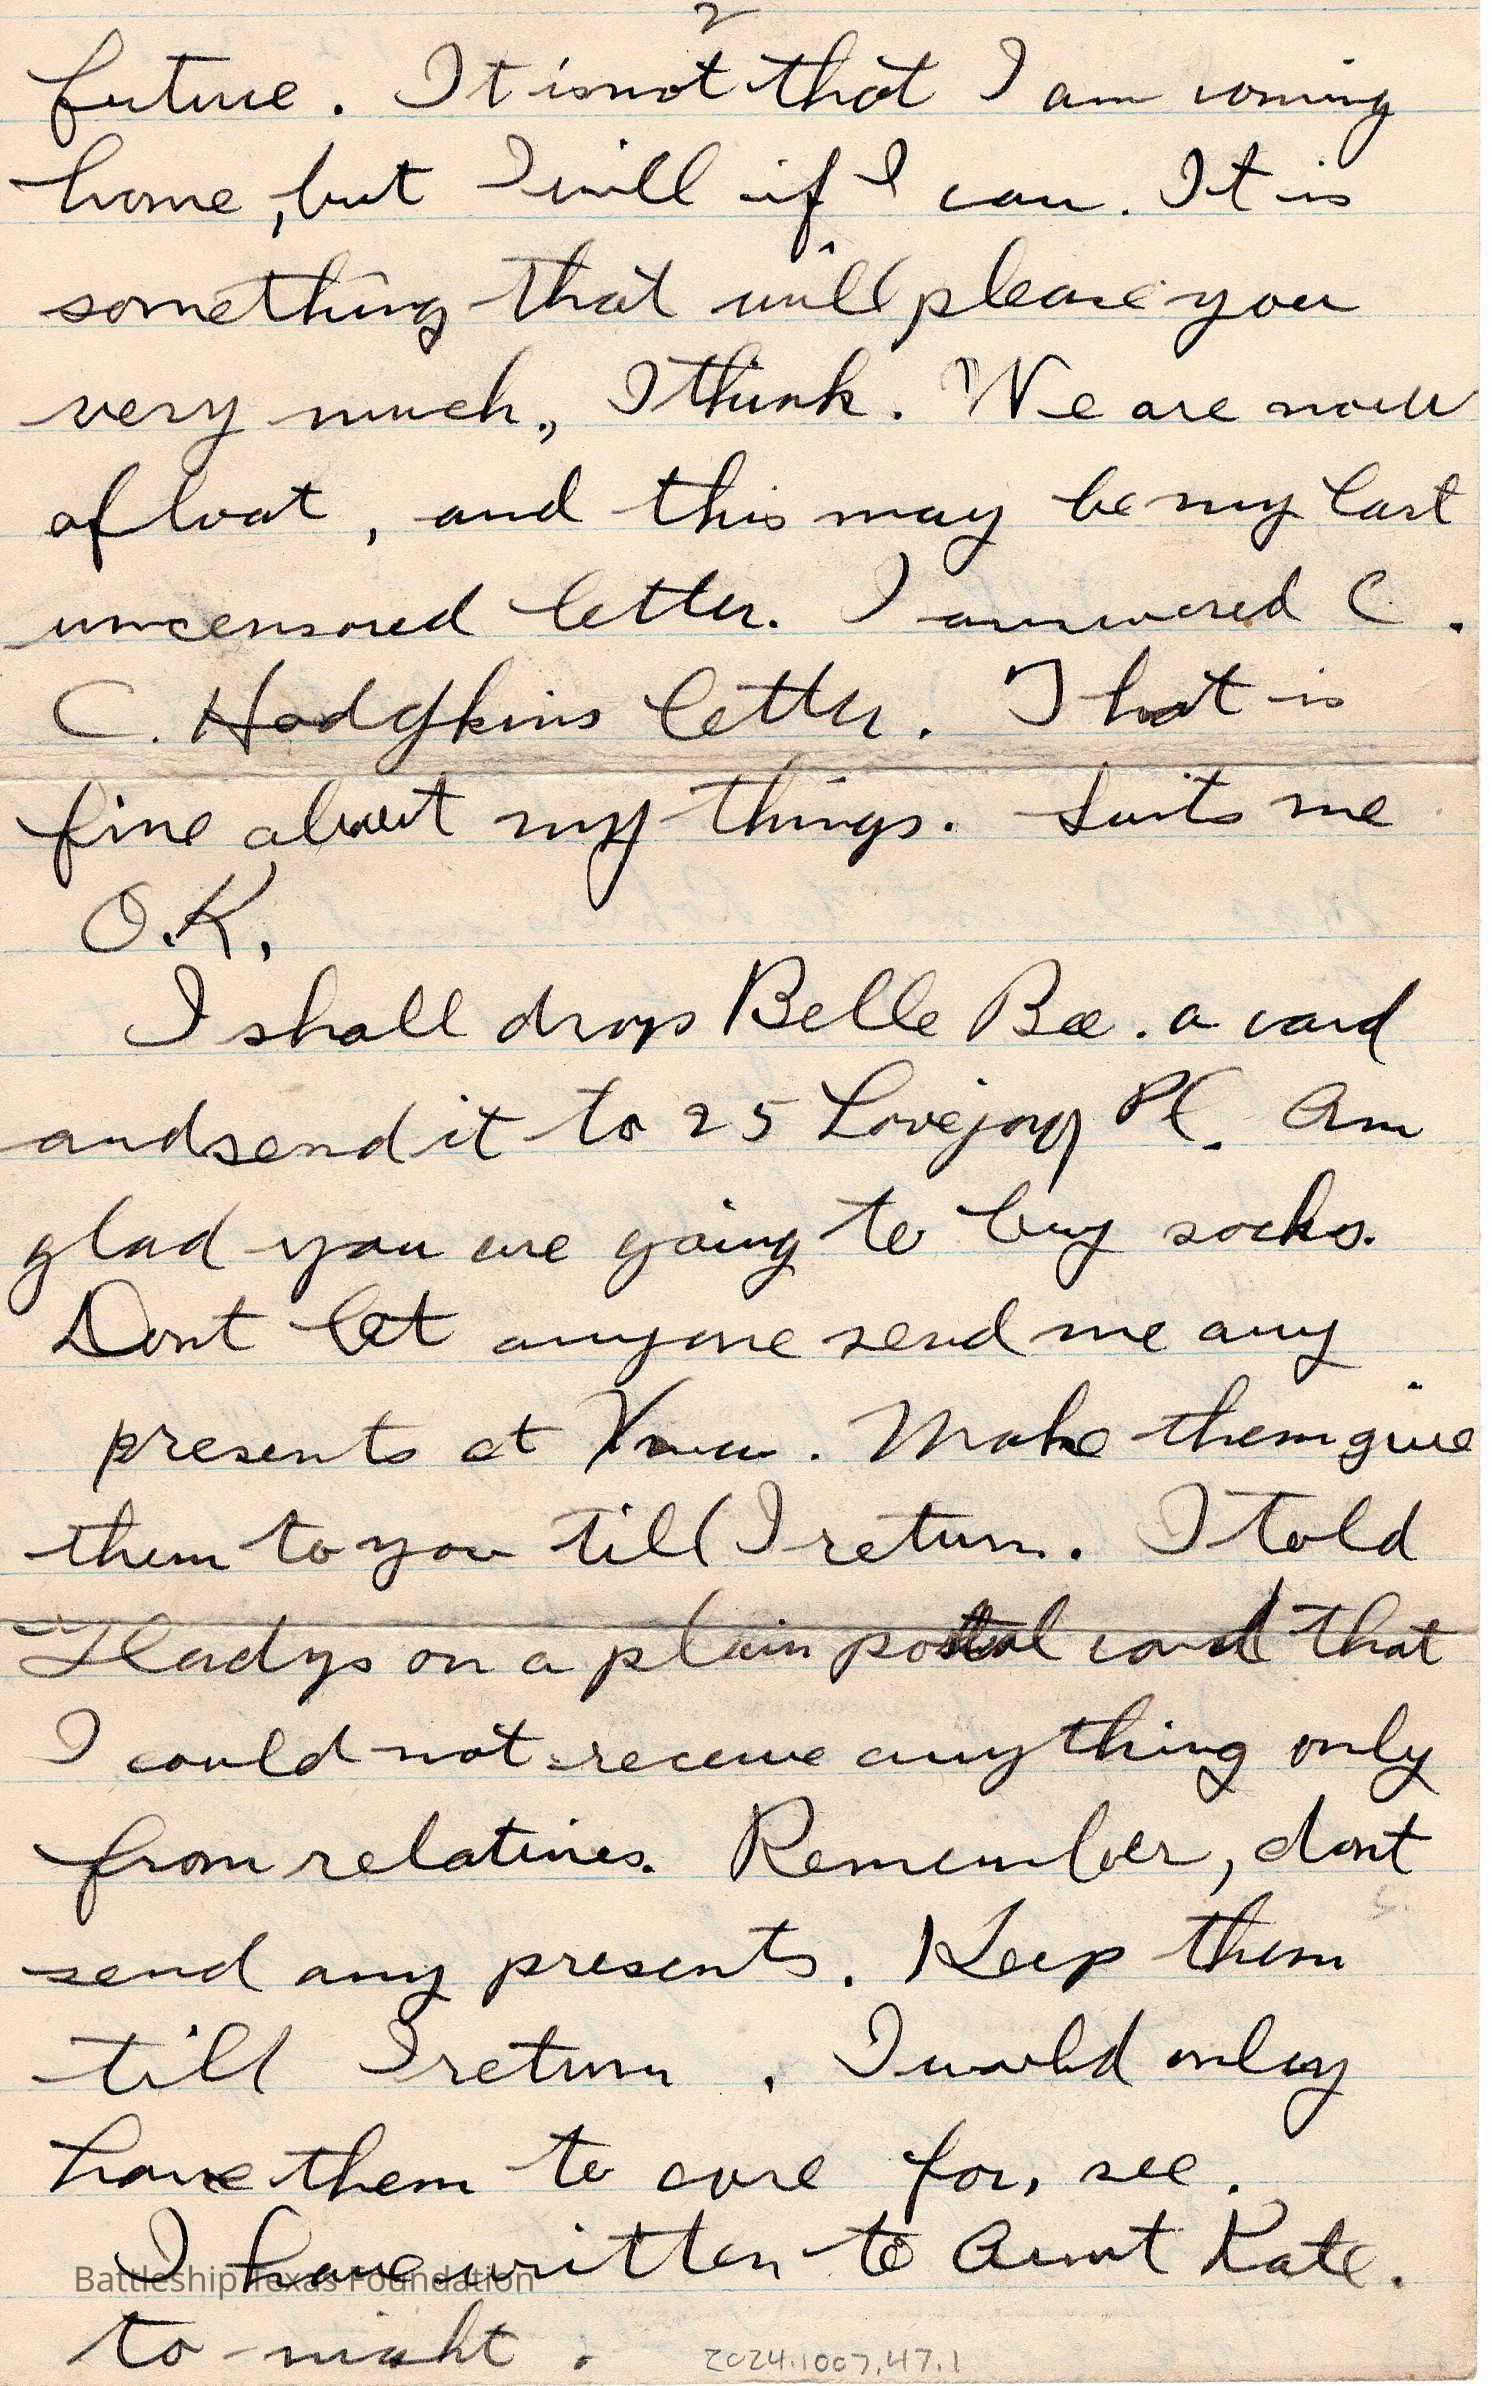 2
future. It is not that I am coming
home, but I will if I can. It is
something that will please you
very much, I think. We are now
afloat, and this may be my last
uncensored letter. I answered C.
C. Hodgkins letter. That is
fine about my things. Suits me
O.K.
I shall drop Belle Bee. a card
and send it to 25 Lovejoy Pl. Am
glad you are going to buy socks.
Dont let anyone send me any
presents at Xmas. Make them give
them to you till I return. I told
Gladys on a plain postal card that
I could not receive anything only
from relatives. Remember, dont
send any presents. Keep them
till I return. I would only
have them to care for, see.
I have written to Aunt Kate.
to-night.
Battleship Texas Foundation
2024.1007.47.1